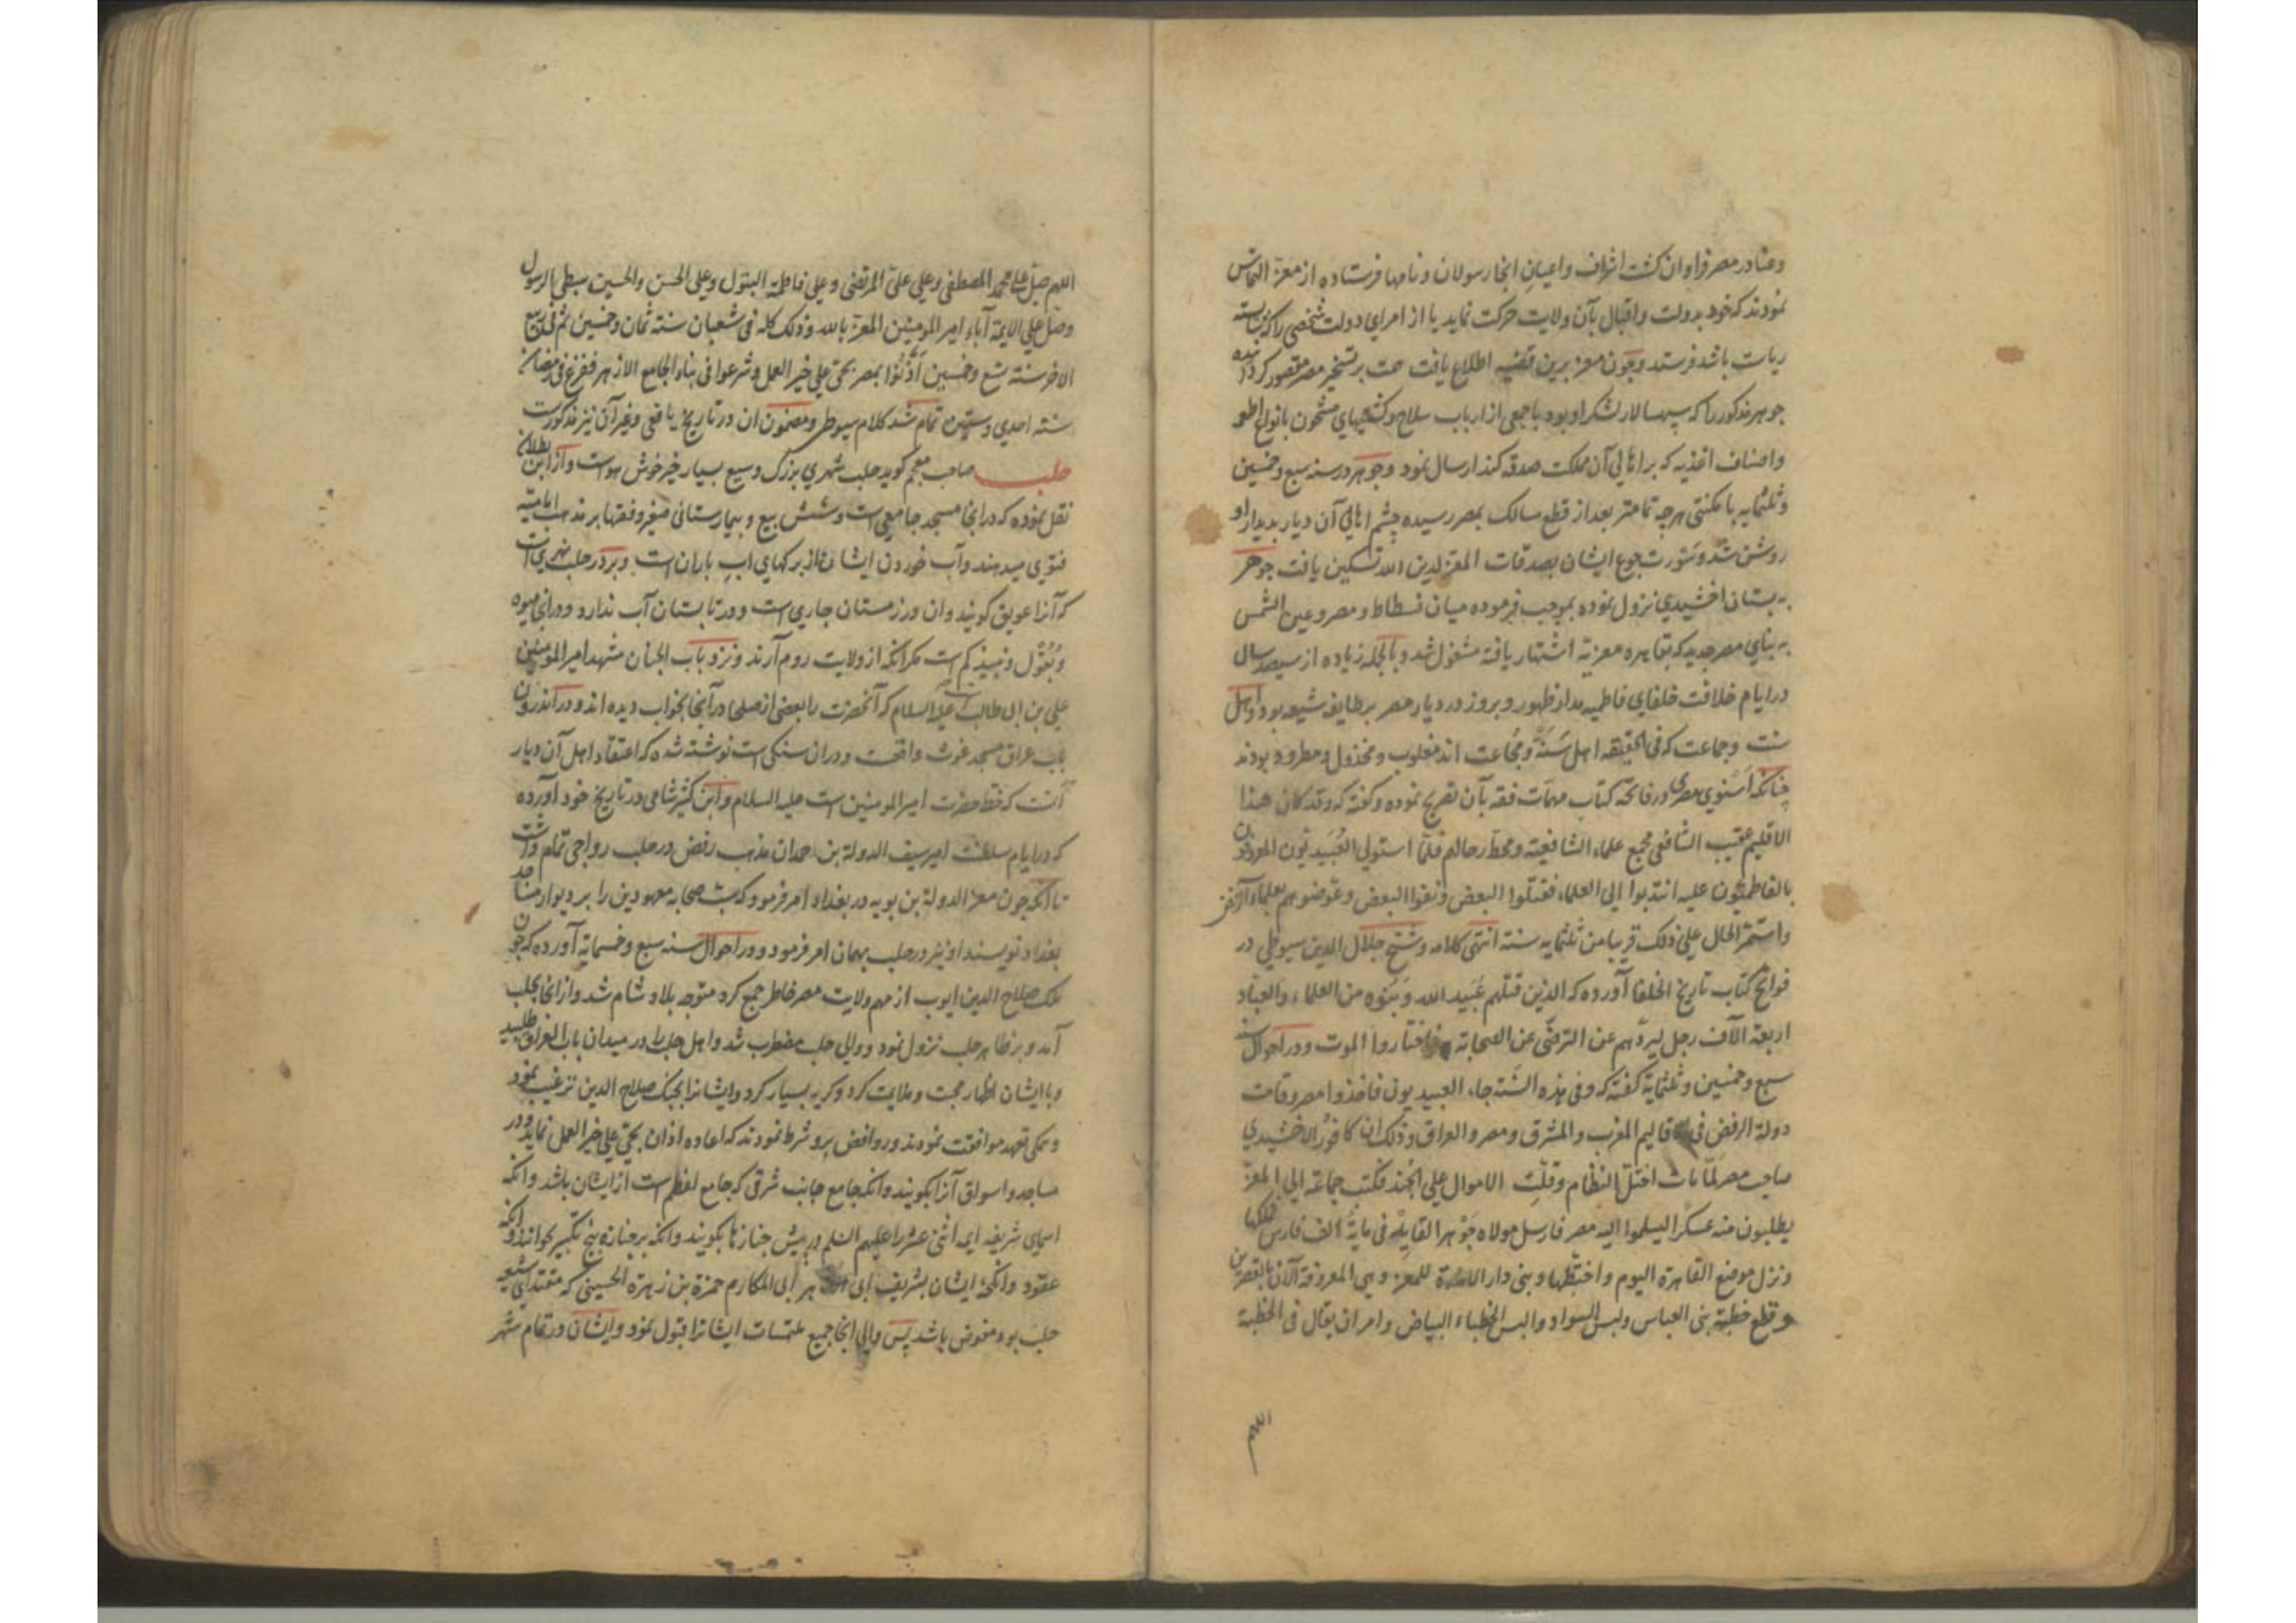 وعنا در مصر فراوان کشت اشراف واعیان انجا رسولان و نامها فرستاده از معز التماس
نمودند که خود بدولت واقبال بآن ولایت حرکت نماید یا از امرای دولت شخصی را که شایسته
ریات باشد فرستد و چون معز برین قضیه اطلاع یافت همت بر تسخیر مصر مقصور کردانیده
جوهر مذکور را که سپهسالار لشکر او بود با جمعی از ارباب سلاح وکشتیهای مشحون بانواع اطعمه
واصناف اغذیه که بر اهالی آن مملکت صدقه کند ارسال نمود وجوهر در سنه سبع وخمسین
وثلثمایه با مکنتی هرچه تمامتر بعد از قطع مسالک بمصر رسیده چشم اهالی آن دیار بدیدار او
روشن شد وسورت جوع ایشان بصدقات المعز لدین الله تسکین یافت جوهر
به بستان اخشیدی نزول نموده بموجب فرموده میان فسطاط ومصر وعین الشمس
به بنای مصر جدید که بقاهره معزیه اشتهار یافته مشغول شد وبالجمله زیاده از سیصد سال
در ایام خلافت خلفای فاطمیه مدار ظهور وبروز در دیار مصر بر طایفه شیعه بود واهل
سنت وجماعت که فی الحقیقه اهل سَنَة ومجاعت اند مغلوب ومخذول ومطرود بودند
چنانکه اسنوی مصری در فاتحه کتاب مهمات فقه بآن تصریح نموده وکفته که وقد کان هذا
الاقلیم عقیب الشافعی مجمع علماء الشافعیة ومحط رحالهم فلما استولی العُبَیدیّون المعروفون
بالفاطمیّون علیه انتدبوا الی العلماء فقتلوا البعض ونفوا البعض وعوضوهم بعلماء الرفض
واستمر الحال علی ذلک قریبا من ثلثمایه سنة انتهی کلامه وشیخ جلال الدین سیوطی در
فواتح کتاب تاریخ الخلفا آورده که الذین قتلهم عُبَید الله وبَنُوه من العلماء والعباد
اربعة الآف رجل لیردهم عن الترضّی عن الصحابة فاختاروا الموت ودر احوال سنه
سبع وخمسین وثلثمایة کفته که وفی هذه السَّنة جاء العبیدیون فاخذوا مصر وقامت
دولة الرفض فی اقالیم المغرب والمشرق ومصر والعراق وذلک ان کافور الاخشیدی
صاحب مصر لمّا مات اختلّ النظام وقلّت الاموال علی الجُند فکتب جماعة الی المعزّ
یطلبون منه عسکرا لیسلموا الیه مصر فارسل مولاه جَوْهر القاید فی مایة الف فارس فملکها
ونزل موضع القاهرة الیوم واختطّها وبنی دار الامارة للمعز وهی المعروفة الآن بالقصرین
وقطع خطبة بنی العباس ولبس السواد والبس الخطباء البیاض وامر ان یقال فی الخطبة
اللهم
اللهم صلّ علی محمد المصطفی وعلی علیّ المرتضی وعلی فاطمة البتول وعلی الحسن والحسین سبطی الرسول
وصلّ علی الایمة آباء امیر المومنین المعز بالله وذلک کله فی شعبان سنة ثمان وخمسین ثم فی ربیع
الاخر سنة تسع وخمسین اَذّنُوا بمصر بحیّ علی خیر العمل وشرعوا فی بناء الجامع الازهر ففرغ فی رمضان
سنة احدی وستین تمام شد کلام سیوطی ومضمون ان در تاریخ یافعی وغیر آن نیز مذکورست
حلب صاحب معجم کوید حلب شهری بزرک وسیع بسیار خیر خوش هواست واز ابن بطلان
نقل نموده که در انجا مسجد جامعی است وشش بیع وبیمارستانی صغیر وفقها بر مذهب امامیه
فتوی میدهند وآب خوردن ایشان از برکهای اب باران است وبر در حلب نهری است
که آنرا عویق کویند وان در زمستان جاری است ودر تابستان آب ندارد ودر انجا میوه
وبُقُول ونبیذ کم است مکر انکه از ولایت روم آرند ونزد باب الجنان مشهد امیر المومنین
علی بن ابی طالب علیه السلام که آنحضرت را بعضی از صلحا در آنجا بخواب دیده اند ودر اندرون
باب عراق مسجد غوث واقعست ودران سنکی است نوشته شده که اعتقاد اهل آن دیار
آنست که خط حضرت امیر المومنین است علیه السلام وابن کثیر شامی در تاریخ خود آورده
که در ایام سلطنت امیر سیف الدولة بن حمدان مذهب رفض در حلب رواجی تمام داشت
تا انکه چون معز الدولة بن بویه در بغداد امر فرمود که سبّ صحابه معهودین را بر دیوار مساجد
بغداد نویسند او نیز در حلب بهمان امر فرمود ودر احوال سنه سبع وخمسمایة آورده که چون
ملک صلاح الدین ایوب از مهم ولایت مصر خاطر جمع کرد متوجه بلاد شام شد واز انجا بحلب
آمد وبر ظاهر حلب نزول نمود ووالی حلب مضطرب شد واهل حلب را در میدان باب العراق طلبید
وبا ایشان اظهار محبت وملایمت کرد وکریه بسیار کرد وایشانرا بجنک صلاح الدین ترغیب نمود
وهمکی تعهد موافقت نمودند وروافض برو شرط نمودند که اعاده اذان بحیّ علی خیر العمل نماید ودر
مساجد واسواق آنرا بکویند وانکه جامع جانب شرقی که جامع اعظم است از ایشان باشد وانکه
اسمای شریفه ایمه اثنی عشر را علیهم السلم در پیش جنازها بکویند وانکه بر جنازه پنج تکبیر بخوانند وانکه
عقود وانکحه ایشان بشریف ابی طاهر ابی المکارم حمزة بن زهرة الحسینی که مقتدای شیعه
حلب بود مفوض باشد پس والی انجا جمیع ملتمسات ایشانرا قبول نمود وایشان در تمام شهر